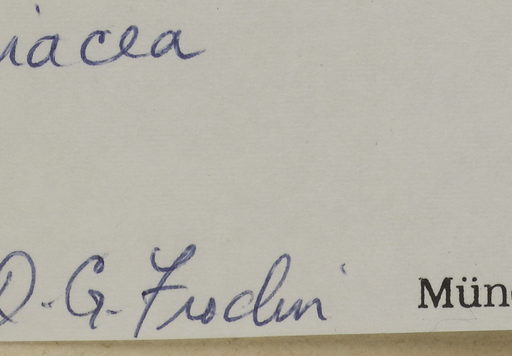 iacea
D. G. Frodin Münc